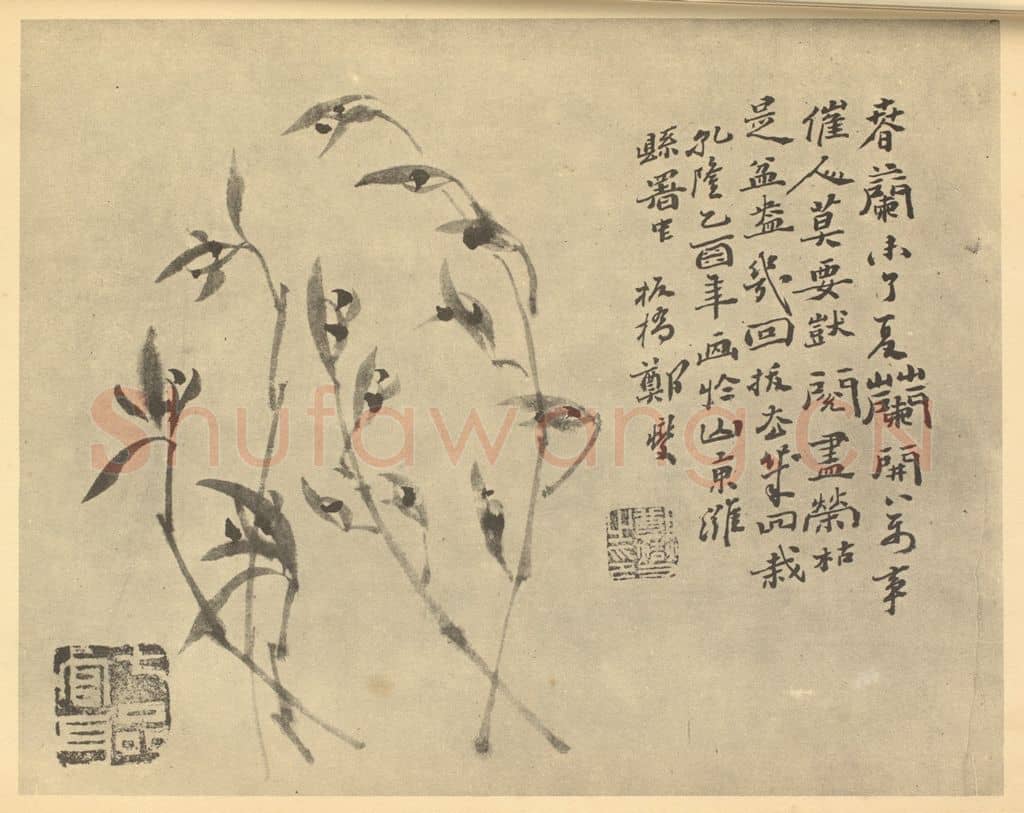 春蘭未了夏蘭開萬事
催人莫要獃閱盡榮枯
是盆盎幾回拔去幾回栽
乾隆乙酉年画於山東濰
縣署中 板橋鄭燮
Shufawang.CN